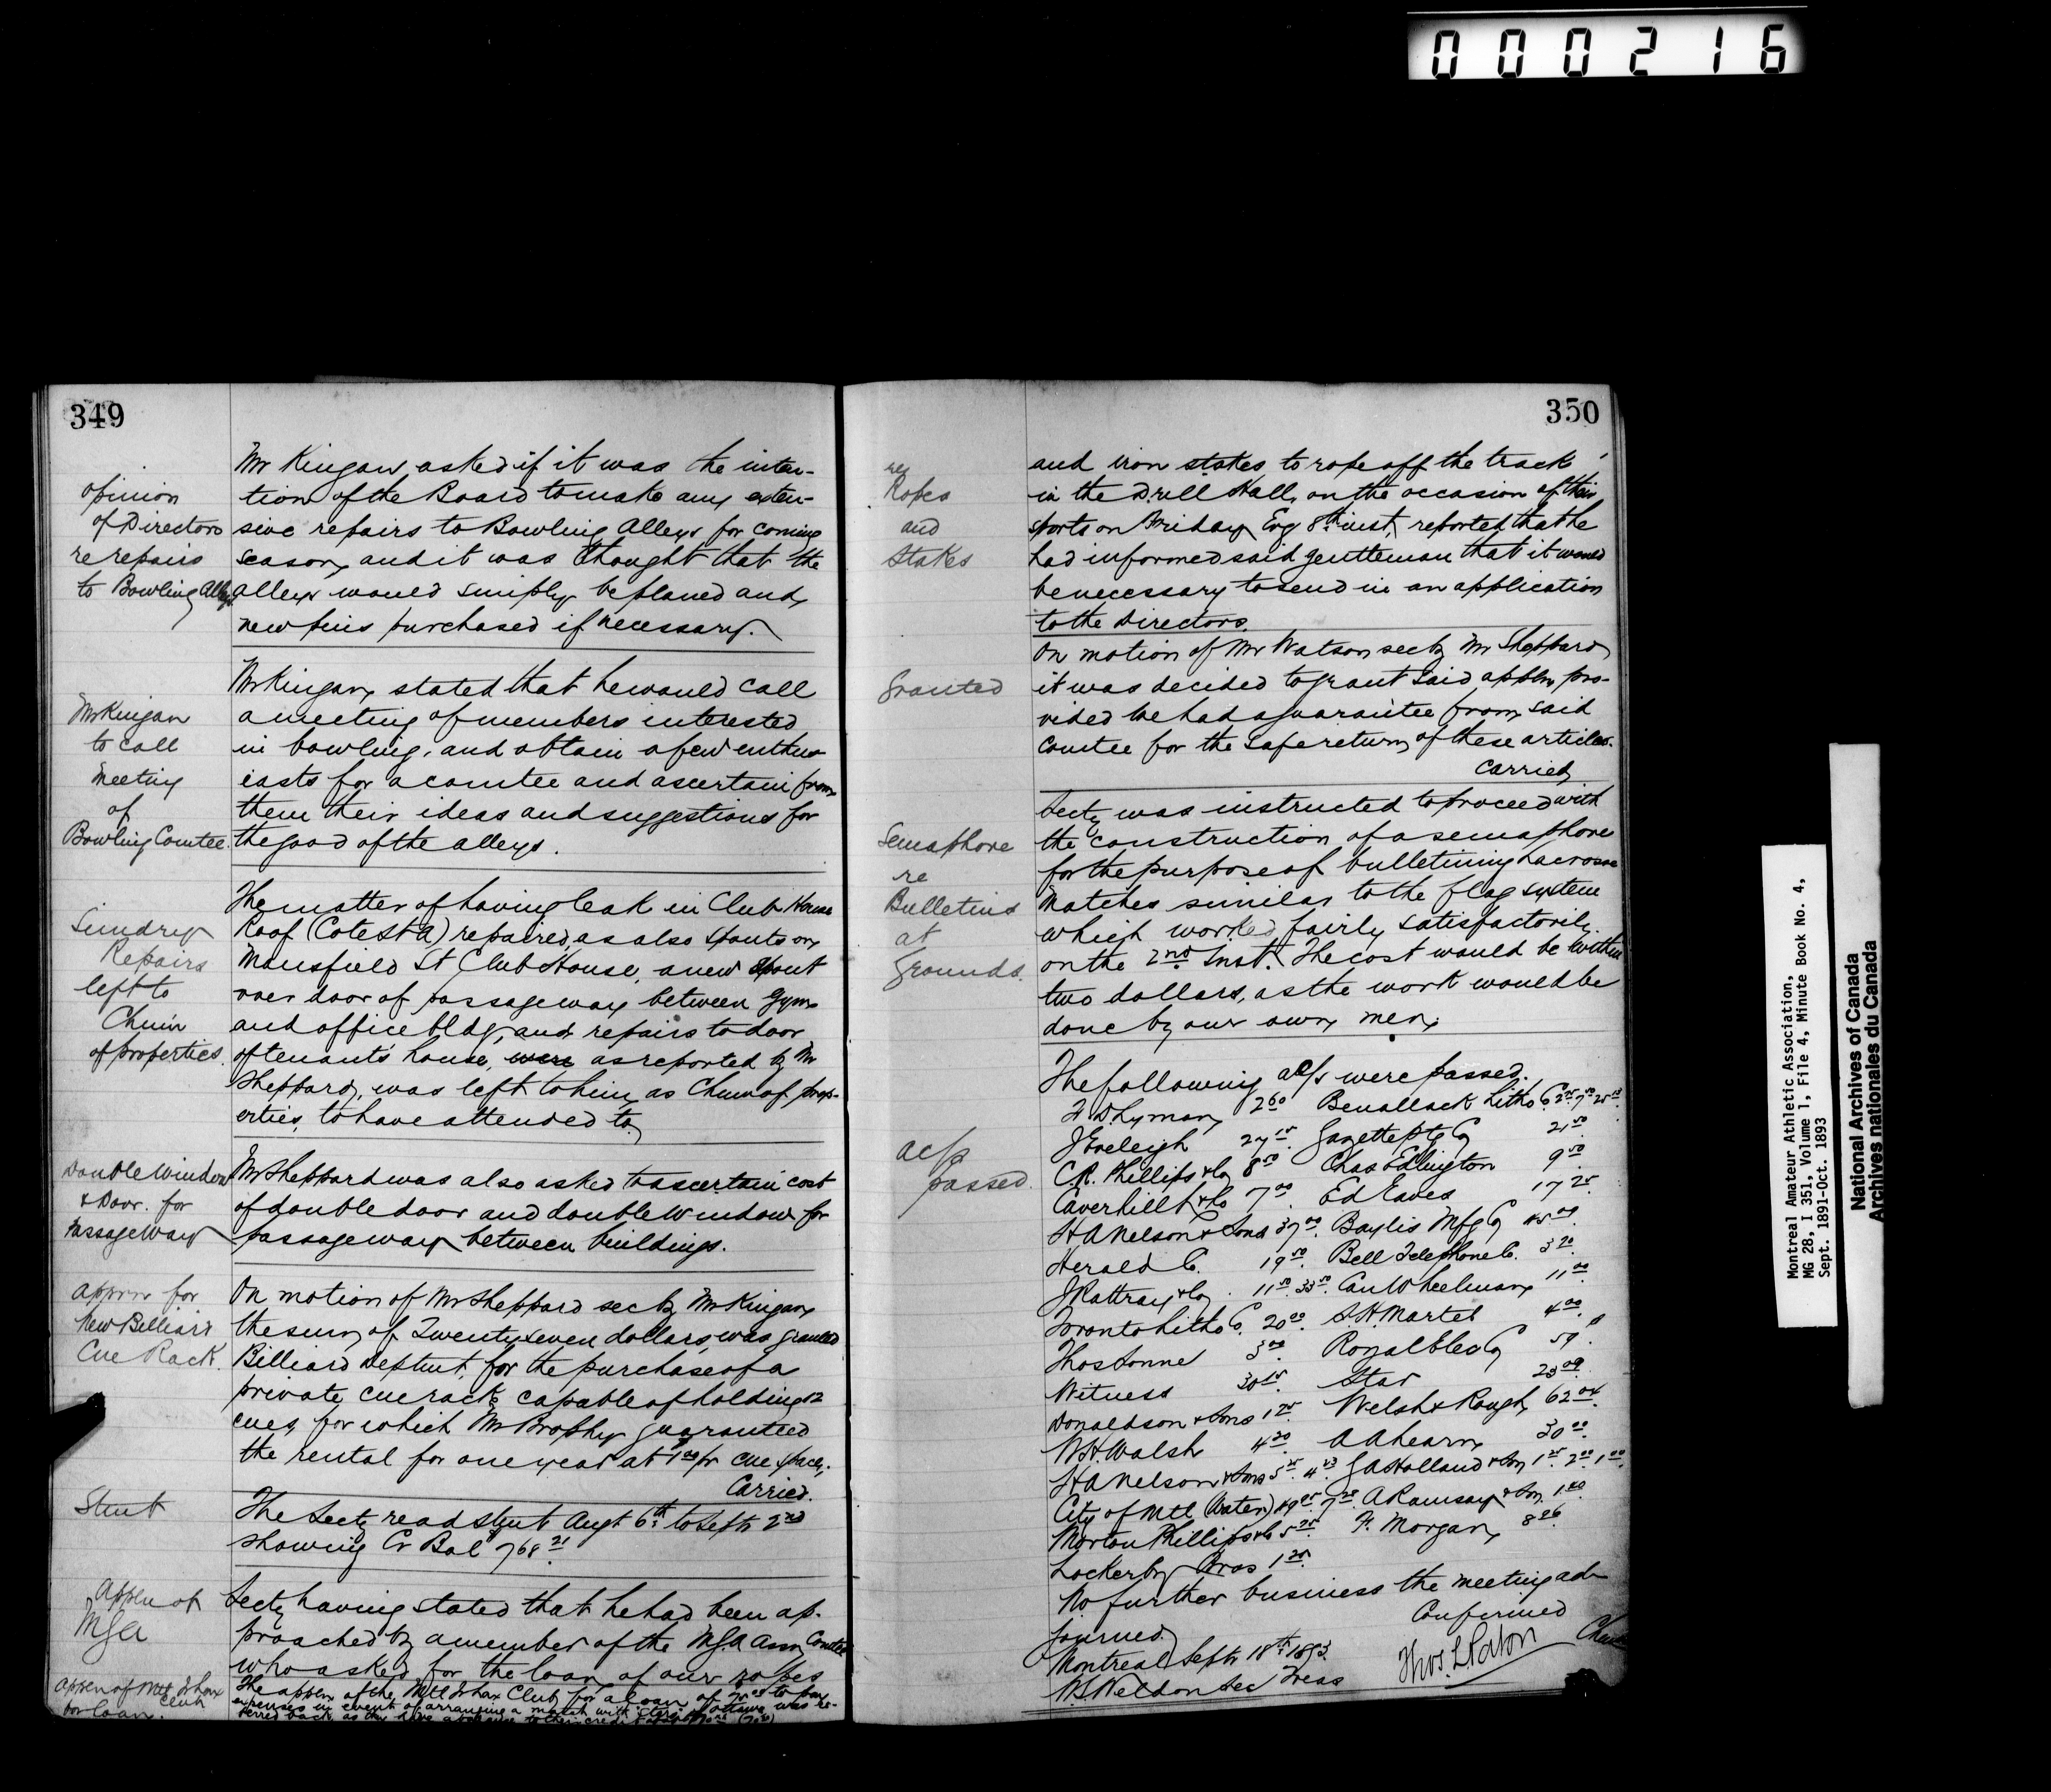 000216
349
Mr Kingan asked if it was the inten-
opinion
tion of the Board to make any exten-
of Directors
sive repairs to Bowling Alleys for coming
re repairs
season, and it was thought that the
to Bowling Alleys
alleys would simply be planed and
new pins purchased if necessary.
Mr Kingan stated that he would call
Mr Kingan
a meeting of members interested
to call
in bowling, and obtain a few enthus-
meeting
iasts for a comtee and ascertain from
of
them their ideas and suggestions for
Bowling Comtee.
the good of the alleys.
The matter of having leak in Club House
Sundry
Roof (Cote St A) repaired, as also spouts on
Repairs
Mansfield St Club House, a new spout
left to
over door of passageway between Gym
Chmn
and office bldg, and repairs to door
of properties.
of tenants house, were as reported by Mr
Sheppard, was left to him as Chmn of prop-
erties, to have attended to.
Double Window
Mr Sheppard was also asked to ascertain cost
& Door for
of double door and double window for
Passageway
passageway between buildings.
Apprn for
On motion of Mr Sheppard sec by Mr Kingan
New Billiard
the sum of Twenty seven dollars was granted
Cue Rack.
Billiard Deptmt, for the purchase of a
private cue rack, capable of holding 12
cues, for which Mr Brophy guaranteed
the rental for one year at 1 00 pr cue space.
Carried.
Stmt
The Secty read Stmt Augt 6th to Septr 2nd
showing Cr Bal 768 21
Appln of
Secty having stated that he had been ap-
MGA
proached by a member of the M.G.A. Assn Comtee
who asked for the loan of our ropes
Appln of Mtl Shax Club
The appln of the Mtl Shax Club for a loan of 75 00 to pay
for loan.
expenses in event of arranging a match with Stars of Ottawa was re-
ferred back as
350
re
and iron stakes to rope off the track
Ropes
in the Drill Hall, on the occasion of their
and
sports on Friday Evg 8th inst, reported that he
Stakes
had informed said gentleman that it would
be necessary to send in an application
to the Directors.
On motion of Mr Watson sec by Mr Sheppard
Granted
it was decided to grant said appln, pro-
vided we had a guarantee from said
comtee for the safe return of these articles.
Carried
Secty was instructed to proceed with
Semaphore
the construction of a semaphore
re
for the purpose of bulletining Lacrosse
Bulletins
Matches similar to the flag system
at
which worked fairly satisfactorily
grounds.
on the 2nd Inst. The cost would be within
two dollars, as the work would be
done by our own men.
The following a/cs were passed.
F D Lyman 2 60 Benallack Litho Co 2 25 7 50 25 50
a/cs
J Eveleigh 27 15 Gazette Ptg Co 21 50
passed.
C.R. Phillips & Co 8 50 Chas Edlington 9 50
Caverhill & Co 7 00 Ed Eaves 17 25
H A Nelson & Sons 37 00 Baylis Mfg Co 45 00
Herald Co. 19 50 Bell Telephone Co. 3 20
J Rattray & Co 11 50 33 50 Can Wheelman 11 00
Toronto Litho Co. 20 00 S.H. Martel 4 00
Thos Sonne 3 00 Royal Elec Co 59
Witness 30 15 Star 23 09
Donaldson & Sons 1 25 Welsh & Rough 62 04
W.H. Walsh 4 20 A Ahearn 30 00
H A Nelson & Sons 5 25 4 43 G A Holland & Son 1 25 2 00 1 00
City of Mtl (Water) 49 85 7 28 A Ramsay & Son 1 40
Morton Phillips & Co 5 25 F. Morgan 8 26
Lockerby Bros 1 25
No further business the meeting ad-
journed. Confirmed
Montreal Septr 18th 1893
W S Weldon Sec Treas Thos. L Paton Chmn
Montreal Amateur Athletic Association,
MG 28, I 351, Volume 1, File 4, Minute Book No. 4,
Sept. 1891-Oct. 1893
National Archives of Canada
Archives nationales du Canada